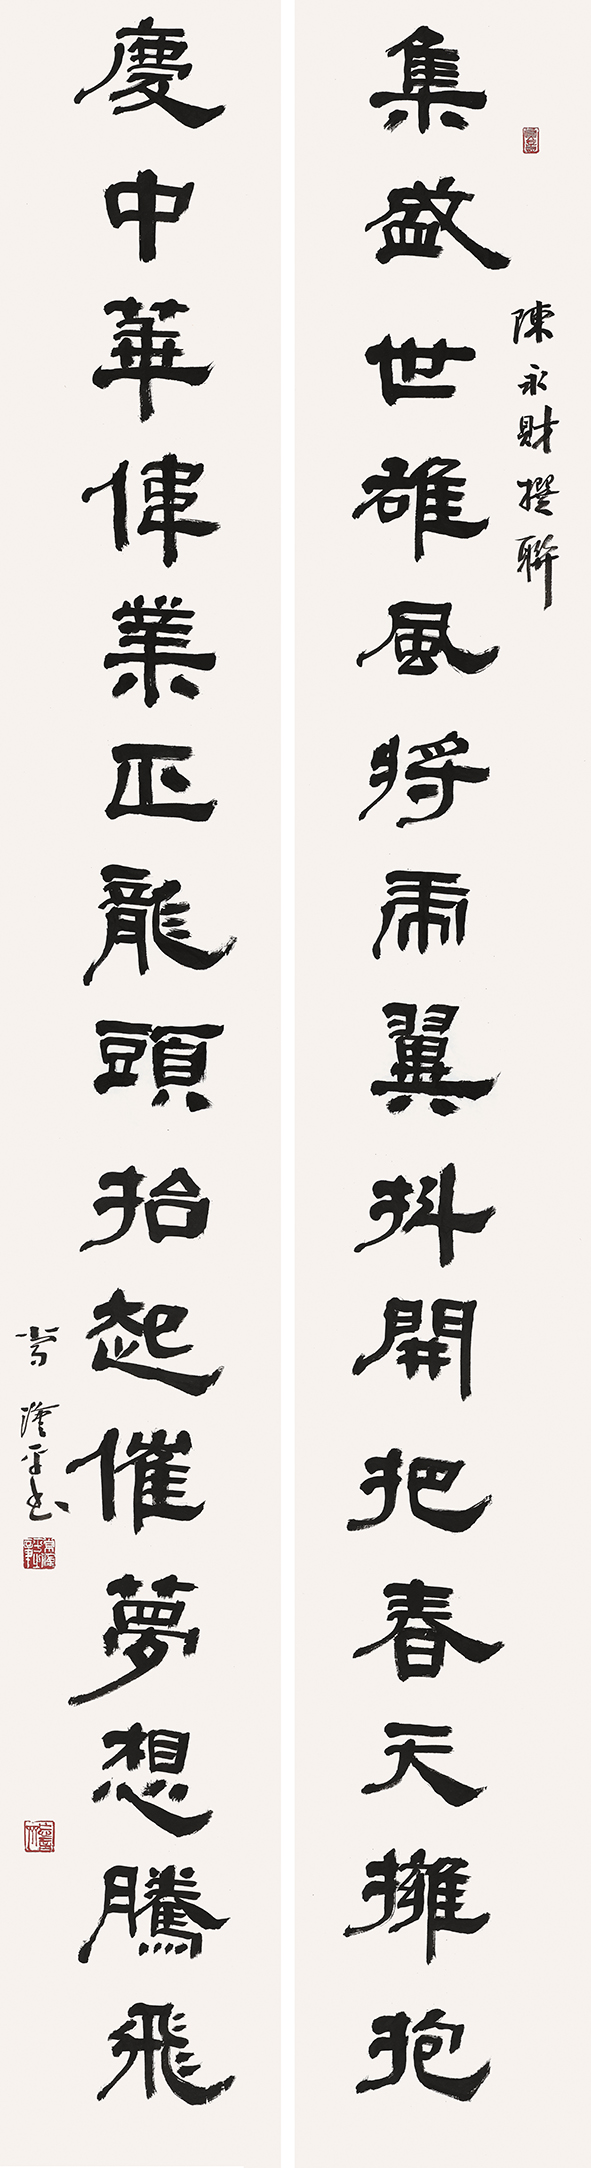 陳永財撰聯
集盛世雄風將虎翼抖開把春天擁抱
慶中華偉業正龍頭抬起催夢想騰飛
常漢平書